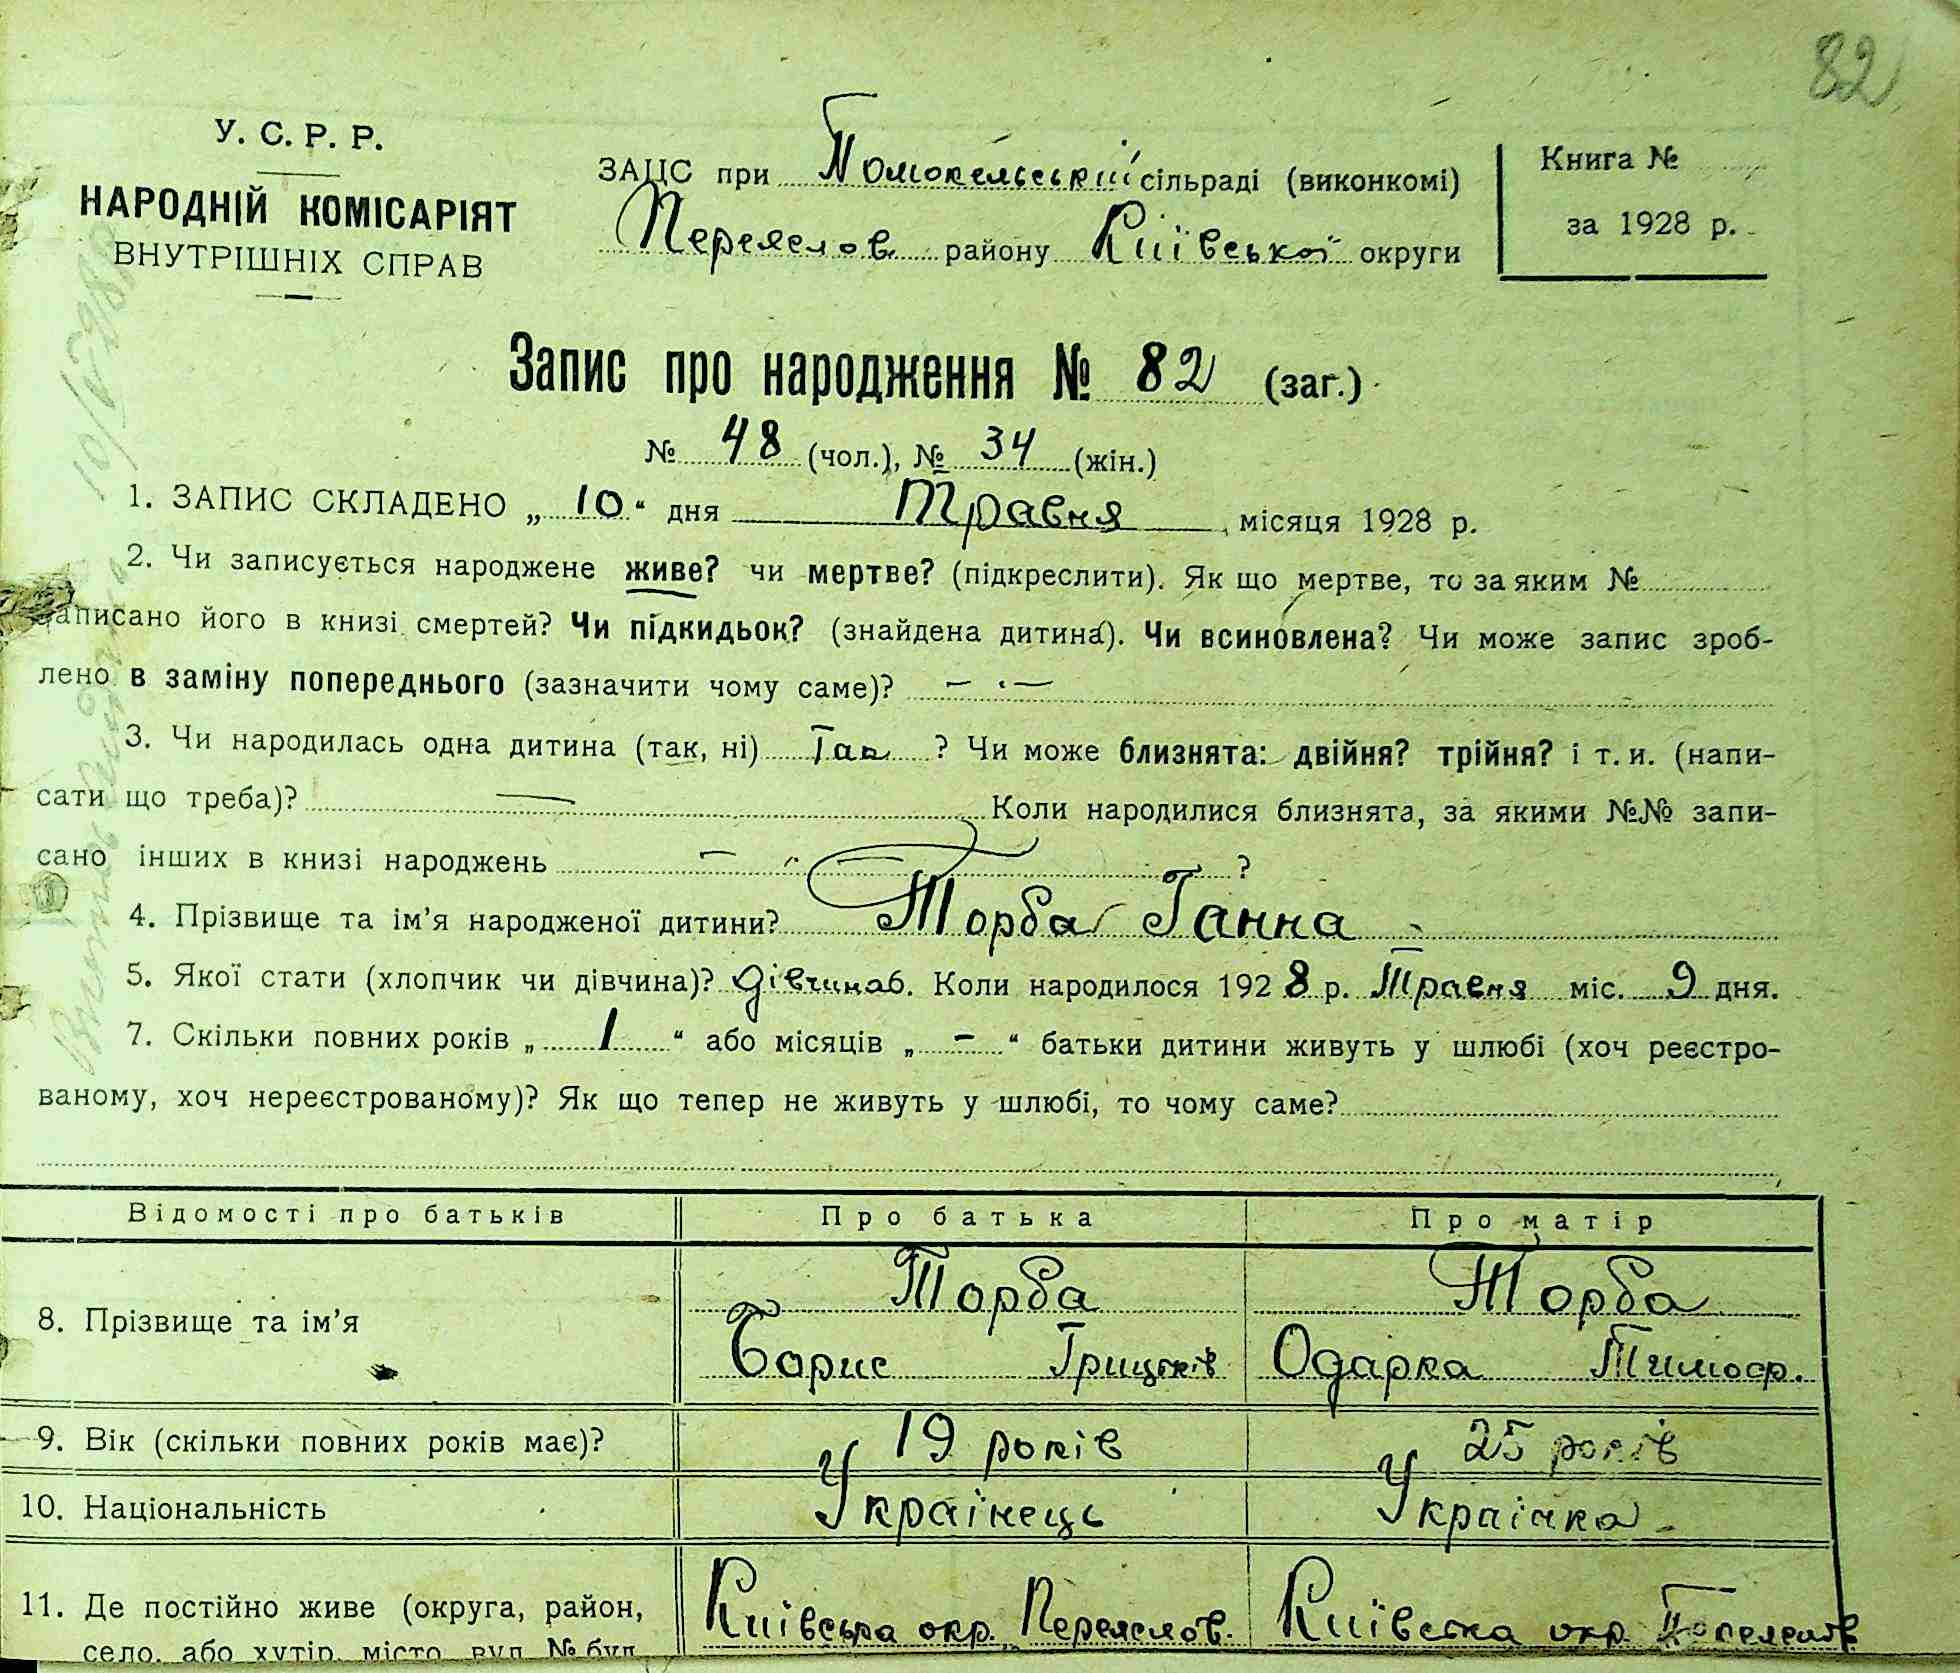 82
У. С. Р. Р.
НАРОДНІЙ КОМІСАРІЯТ
ВНУТРІШНІХ СПРАВ
ЗАЦС при Помокельській сільраді (виконкомі)
Переяслов. району Київської округи
Книга №
за 1928 р.
Запис про народження № 82 (заг.)
№ 48 (чол.), № 34 (жін.)
1. ЗАПИС СКЛАДЕНО „ 10 “ дня Травня місяця 1928 р.
2. Чи записується народжене живе? чи мертве? (підкреслити). Як що мертве, то за яким №
записано його в книзі смертей? Чи підкидьок? (знайдена дитина). Чи всиновлена? Чи може запис зроб-
лено в заміну попереднього (зазначити чому саме)? — —
3. Чи народилась одна дитина (так, ні) Так ? Чи може близнята: двійня? трійня? і т. и. (напи-
сати що треба)? — Коли народилися близнята, за якими №№ запи-
сано інших в книзі народжень — — ?
4. Прізвище та ім’я народженої дитини? Торба Ганна
5. Якої стати (хлопчик чи дівчина)? дівчина 6. Коли народилося 1928 р. Травня міс. 9 дня.
7. Скільки повних років „ 1 “ або місяців „ - “ батьки дитини живуть у шлюбі (хоч реєстро-
ваному, хоч нереєстрованому)? Як що тепер не живуть у шлюбі, то чому саме?
Відомості про батьків Про батька Про матір
8. Прізвище та ім’я Торба Торба
Борис Одарка Тимоф.
9. Вік (скільки повних років має)? 19 років 25 років
10. Національність Українець Українка
11. Де постійно живе (округа, район, Київська окр. Переяслов. Київська окр.
село, або хутір, місто, вул. № буд.